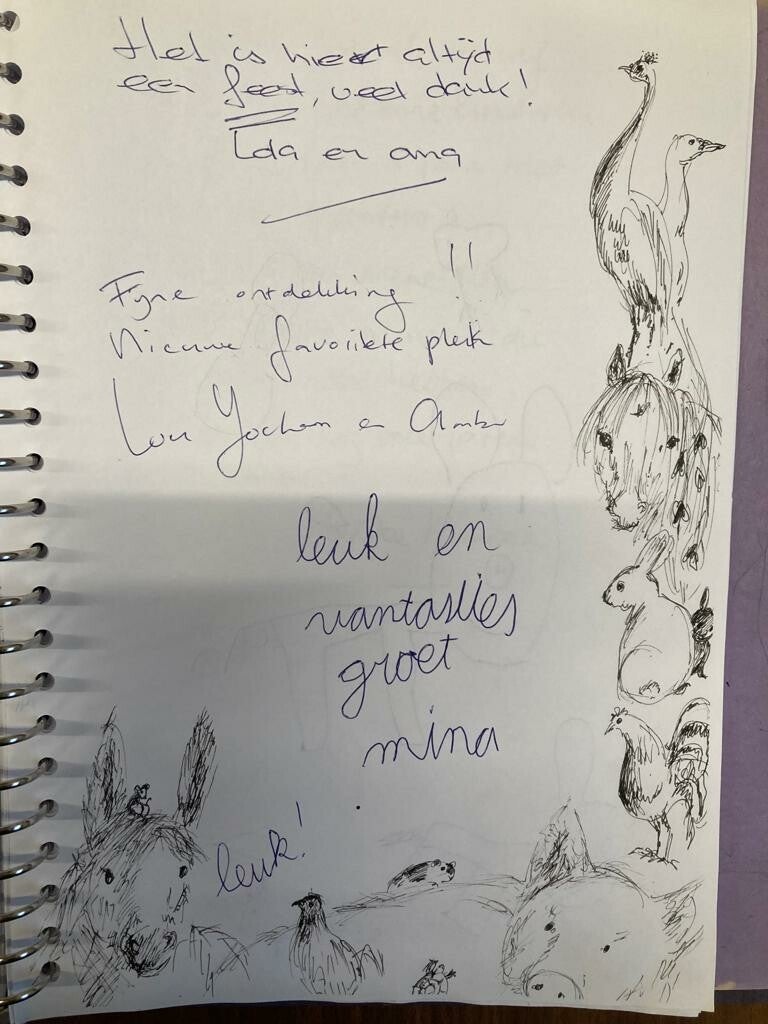 Het is hier altijd
een feest, veel dank!
Ida en ana
Fyne ontdekking !!
Nieuwe favoriete plek
Lou Jochem en Amber
leuk en
vantasties
groet
mina
leuk!